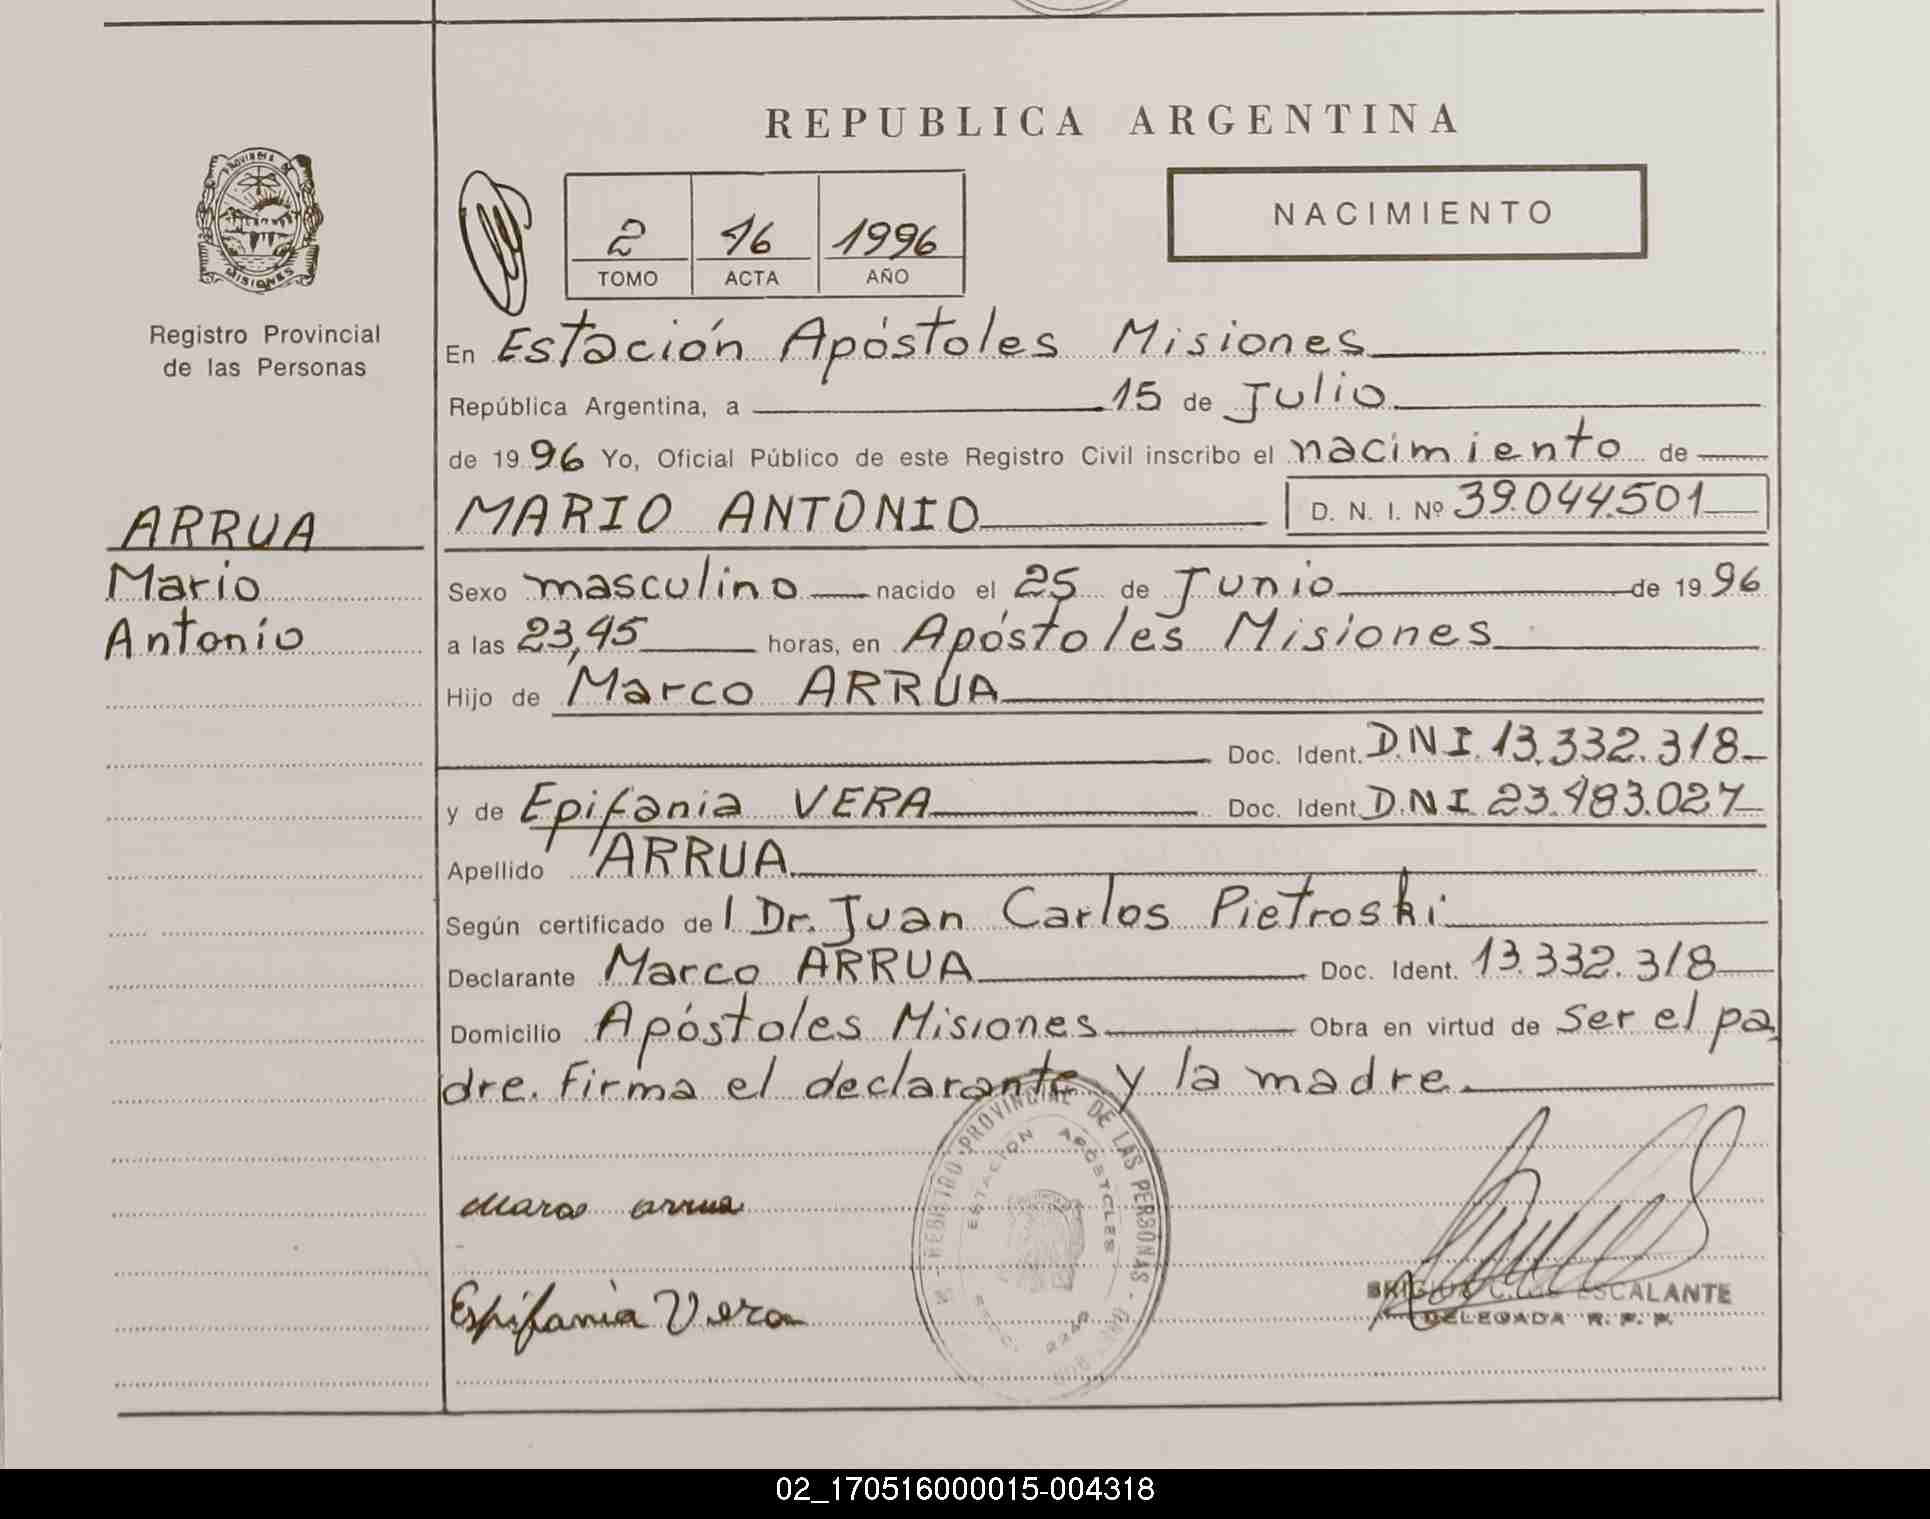 REPUBLICA ARGENTINA
PROVINCIA DE
MISIONES
Registro Provincial
de las Personas
2 16 1996
TOMO ACTA AÑO
NACIMIENTO
En Estación Apóstoles Misiones
República Argentina, a 15 de Julio
de 1996 Yo, Oficial Público de este Registro Civil inscribo el nacimiento de
ARRUA
Mario
Antonio
MARIO ANTONIO D. N. I. Nº 39.044.501
Sexo masculino nacido el 25 de Junio de 1996
a las 23,45 horas, en Apóstoles Misiones
Hijo de Marco ARRUA
Doc. Ident. D.N.I. 13.332.318
y de Epifania VERA Doc. Ident. D.N.I 23.483.027
Apellido ARRUA
Según certificado del Dr. Juan Carlos Pietroski
Declarante Marco ARRUA Doc. Ident. 13.332.318
Domicilio Apóstoles Misiones Obra en virtud de ser el pa
dre. Firma el declarante y la madre.
REGISTRO PROVINCIAL DE LAS PERSONAS
ESTACION APOSTOLES
Marco arrua
Espifania Vera
ESCALANTE
DELEGADA R. P. P.
02_170516000015-004318